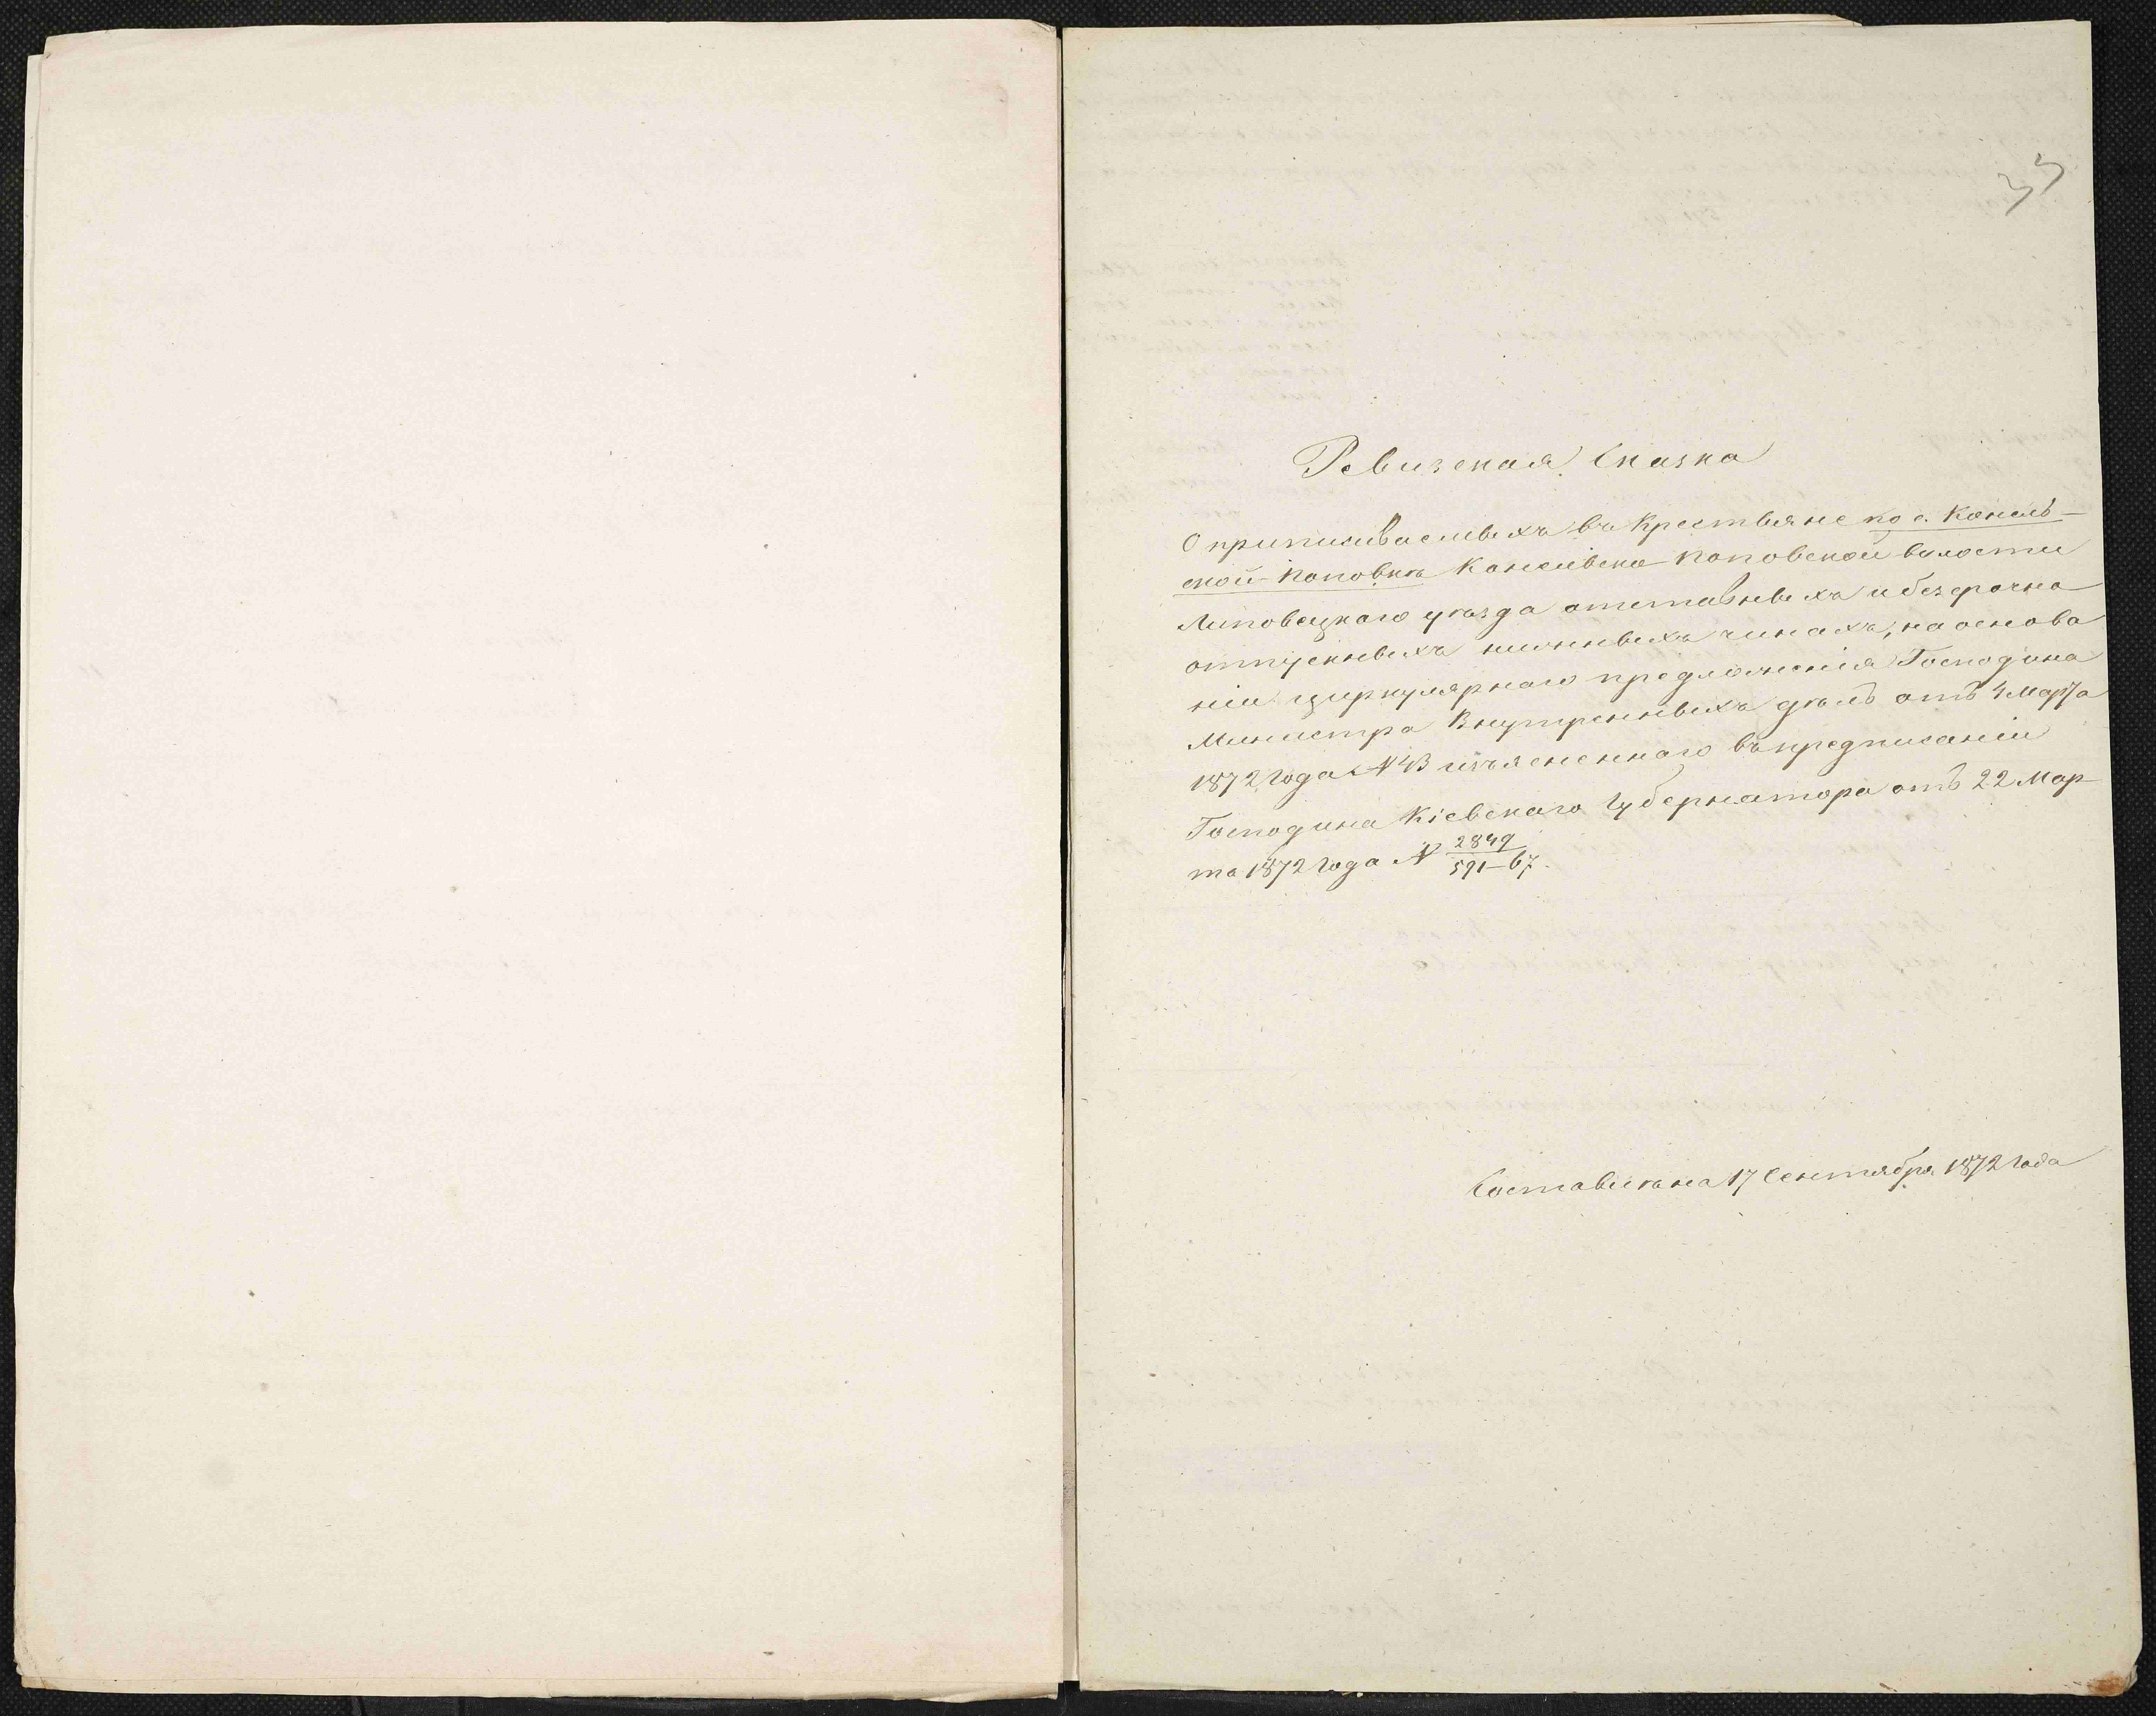 33
Ревизская Сказка
О приписываемыхъ въ крестьяне ко с. Кональ-
ской-Поповкѣ Конельско-Поповской волости
Липовецкаго уѣзда отставныхъ и безсрочно
отпускныхъ нижныхъ чинахъ, на основа
ніи циркулярнаго предложенія Господина
Министра Внутренныхъ дѣлъ отъ 4 Марта
1872 года № 43 изъясненнаго въ предписаніи
Господина Кіевскаго Губернатора отъ 22 Мар-
та 1872 года № 2849/591-67.
Составлѣна 17 Сентября 1872 года